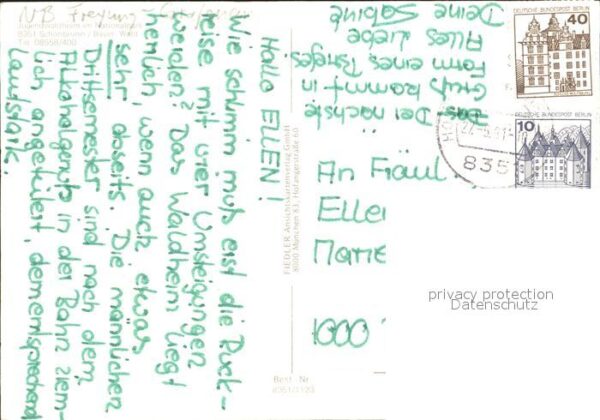 NB Freyung -
Jugendwaldheim im Nationalpark
8351 Schönbrunn / Bayer. Wald
Tel. 08558/400
Hallo ELLEN!
Wie schlimm muß erst die Rück-
reise mit vier Umsteigungen
werden? Das Waldheim liegt
herrlich, wenn auch etwas
sehr abseits. Die männlichen
Drittsemester sind nach dem
Alkoholgenuß in der Bahn ziem-
lich angeheitert, dementsprechend
lautstark.
Der nächste
Gruß kommt in
Form eines Briefes
Alles Liebe
Deine Sabine
FIEDLER Ansichtskartenverlag GmbH
8000 München 83, Hofangerstraße 60
Best. Nr.
8351/3120
DEUTSCHE BUNDESPOST BERLIN
40
DEUTSCHE BUNDESPOST BERLIN
10
835
An Fräul
Ellen
1000
privacy protection
Datenschutz